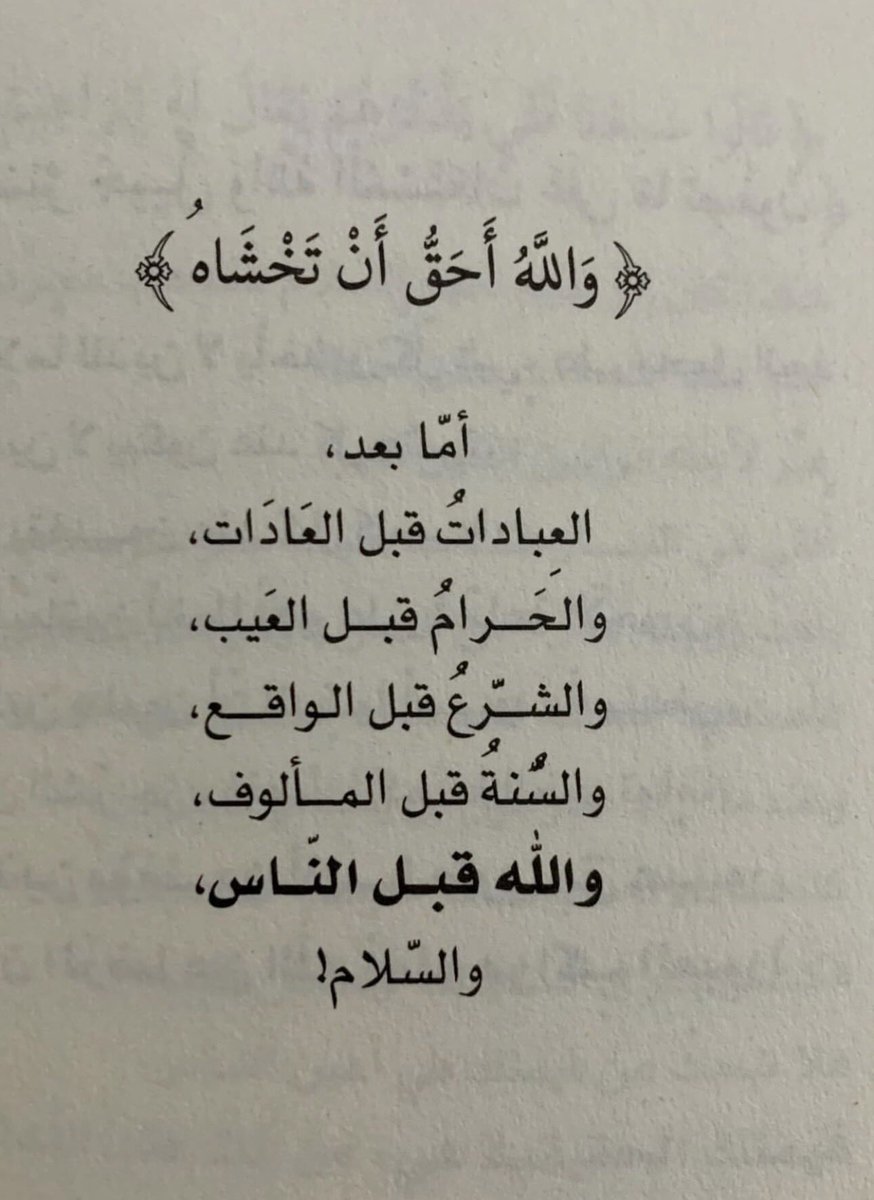 ﴿ وَاللَّهُ أَحَقُّ أَنْ تَخْشَاهُ ﴾
أمّا بعد،
العِباداتُ قبل العَادَات،
والحَرامُ قبل العَيب،
والشّرعُ قبل الواقع،
والسُّنةُ قبل المألوف،
والله قبل النّاس،
والسّلام!